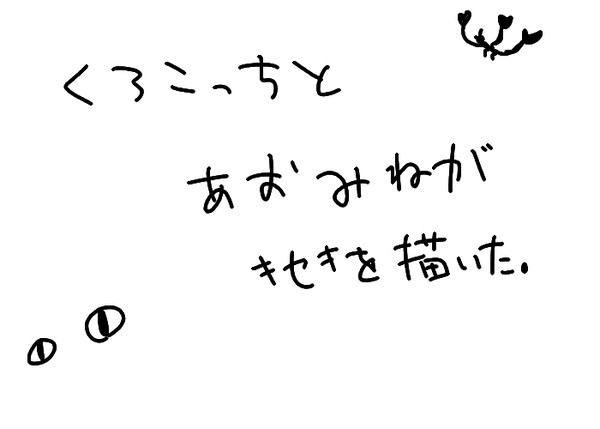 くろこっちと
あおみねが
きせきを描いた。